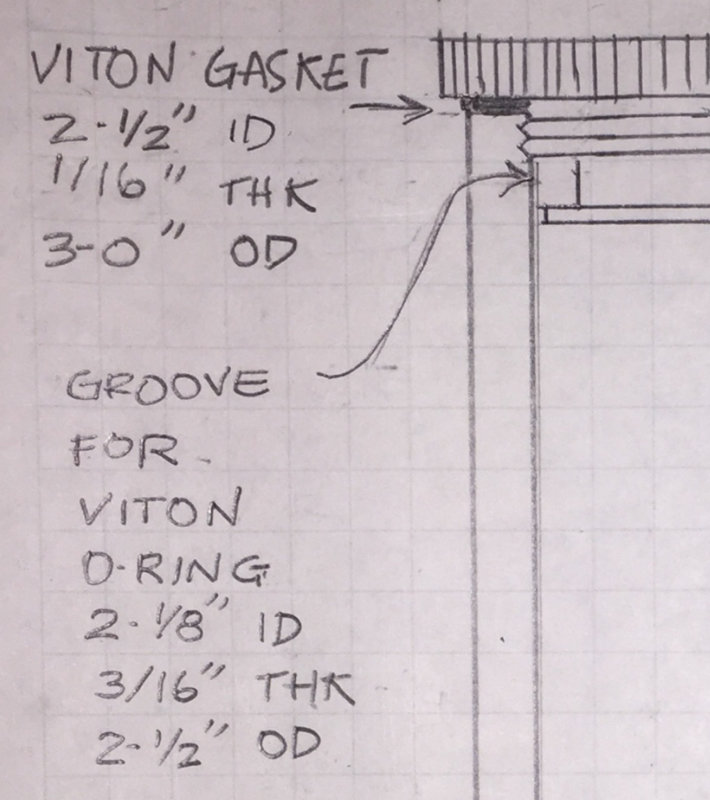 VITON GASKET
2-1/2" ID
1/16" THK
3-0" OD
GROOVE
FOR
VITON
O-RING
2-1/8" ID
3/16" THK
2-1/2" OD